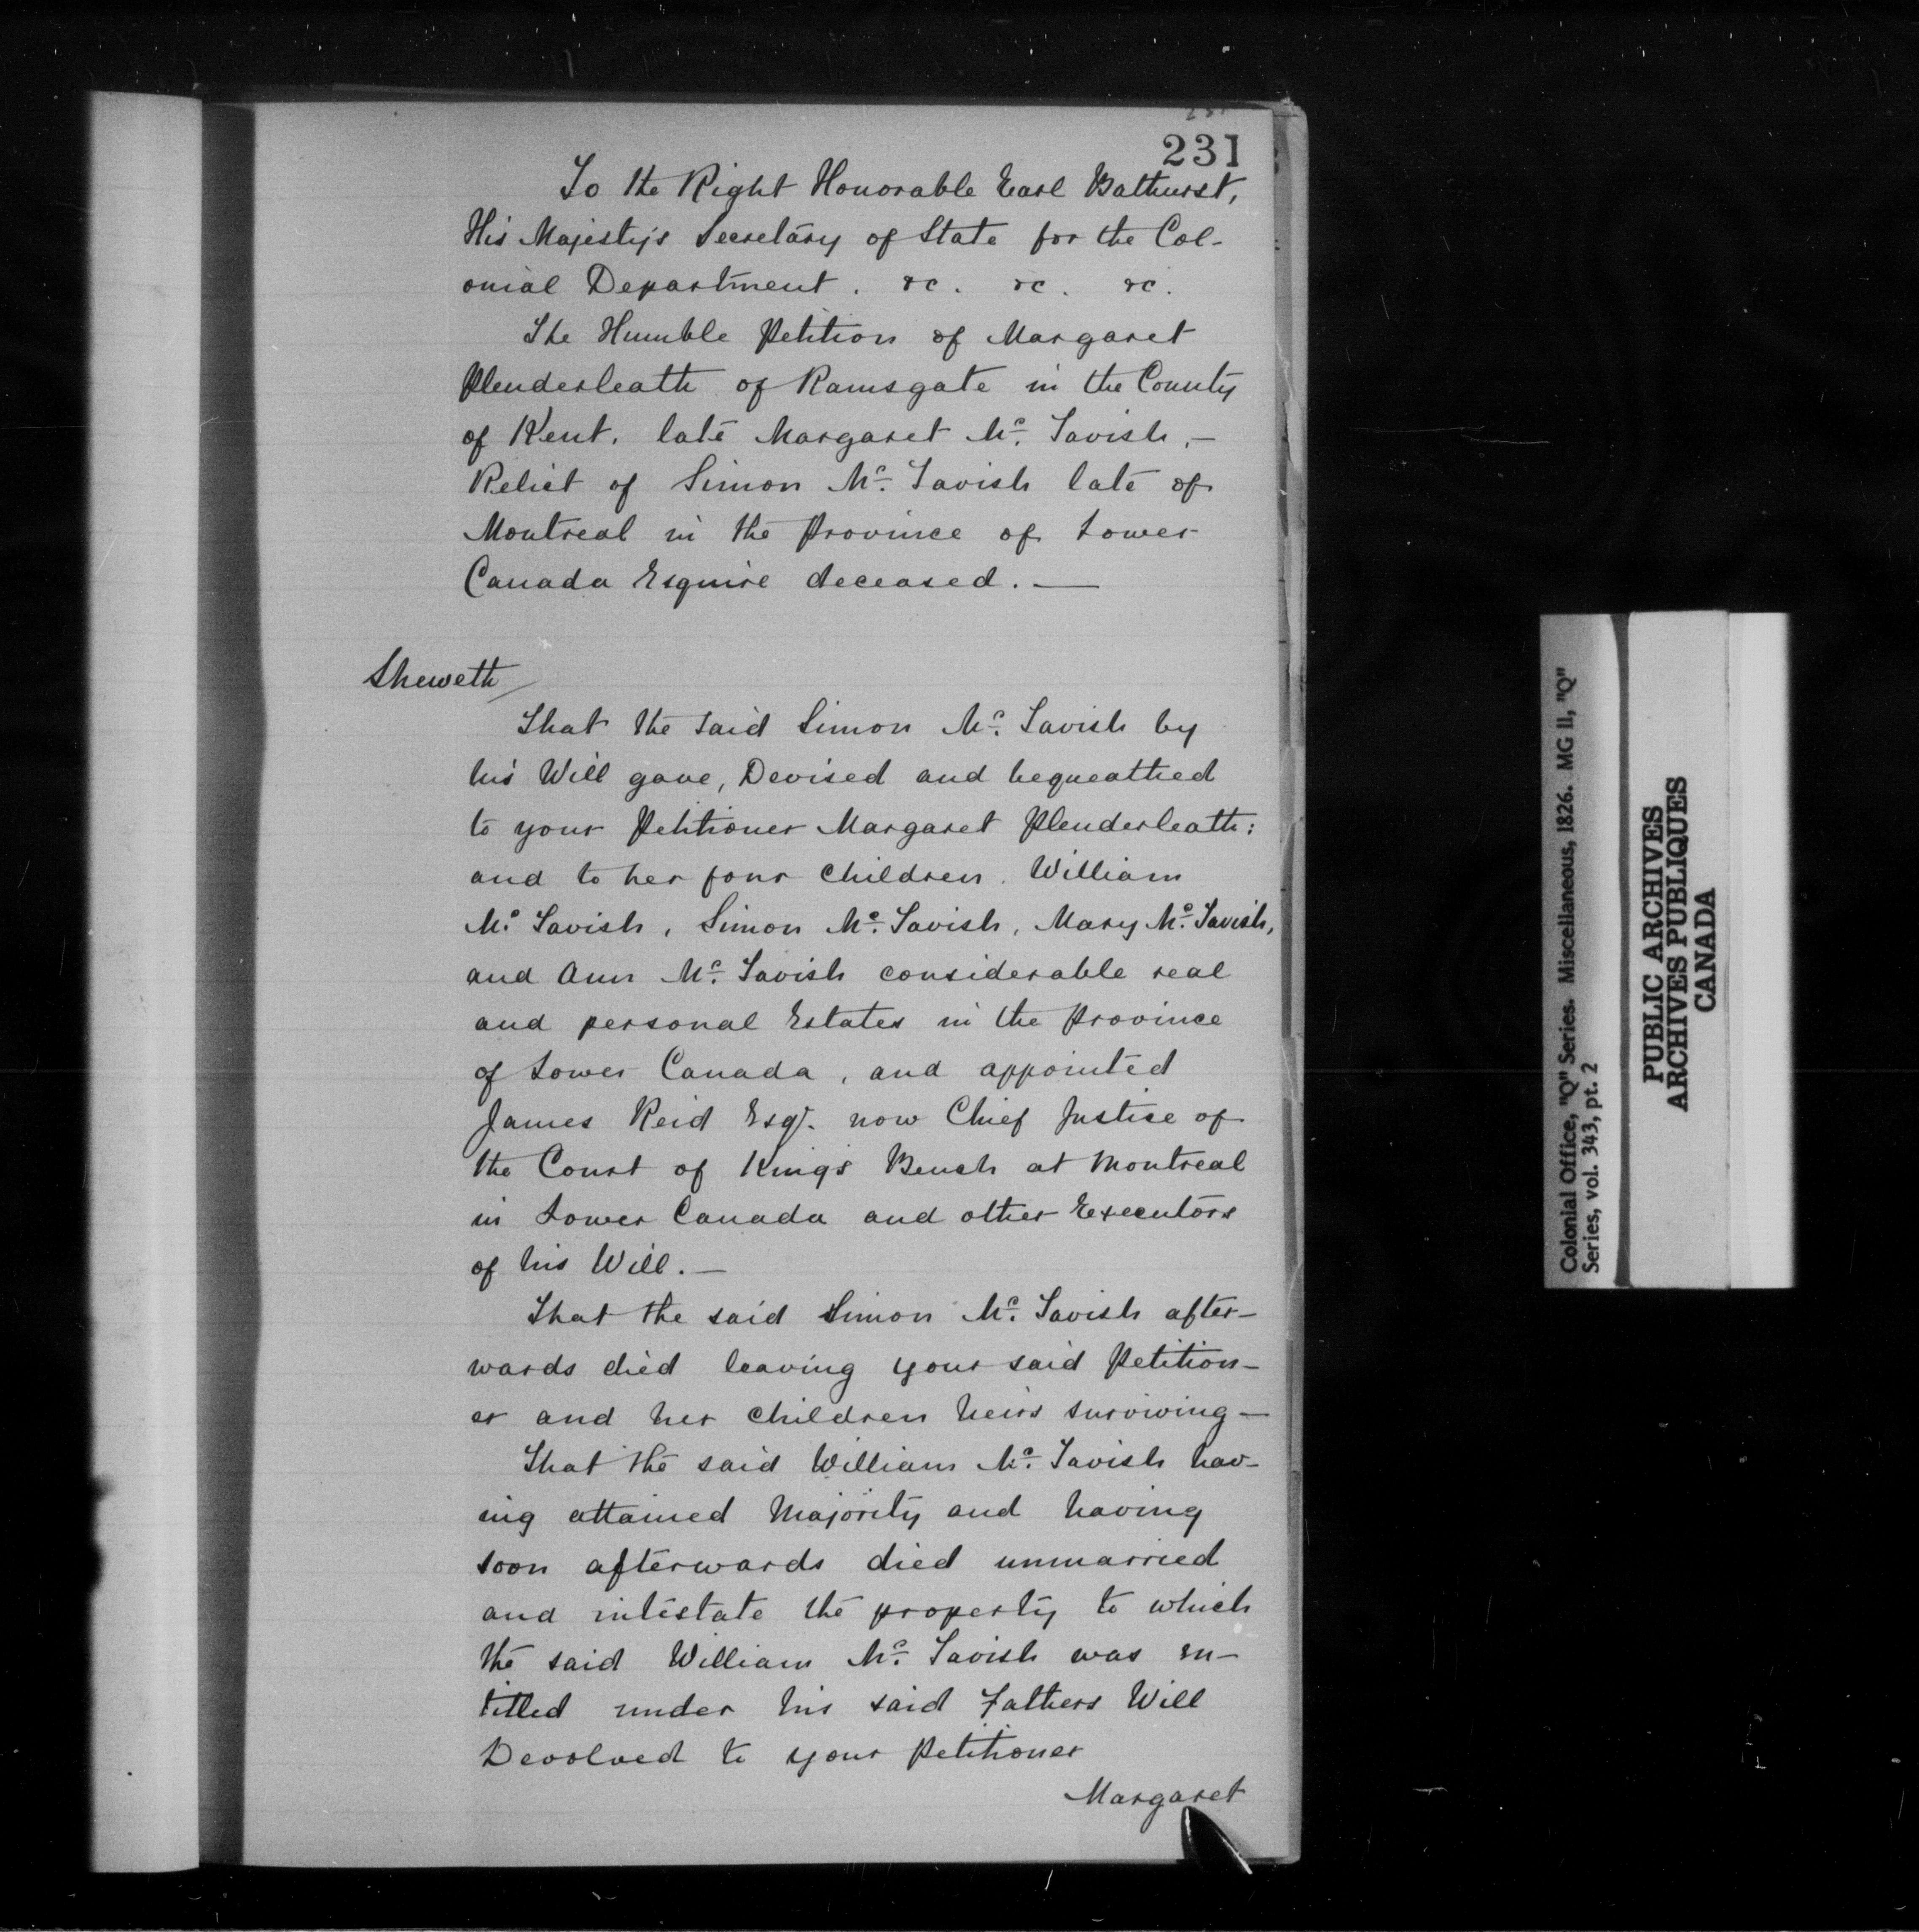 231
To the Right Honorable Earl Bathurst,
His Majesty's Secretary of State for the Col-
onial Department. &c. &c. &c.
The Humble Petition of Margaret
Plenderleath of Ramsgate in the County
of Kent. late Margaret Mc. Tavish, —
Relict of Simon Mc. Tavish late of
Montreal in the Province of Lower
Canada Esquire deceased. —
Sheweth
That the said Simon Mc. Tavish by
his Will gave, Devised and bequeathed
to your Petitioner Margaret Plenderleath:
and to her four Children. William
Mc. Tavish, Simon Mc. Tavish, Mary Mc. Tavish,
and Ann Mc. Tavish considerable real
and personal Estates in the Province
of Lower Canada, and appointed
James Reid Esqr. now Chief Justice of
the Court of Kings Bench at Montreal
in Lower Canada and other Executors
of his Will. —
That the said Simon Mc. Tavish after-
wards died leaving your said Petition-
er and her Children heirs surviving —
That the said William Mc. Tavish hav-
ing attained Majority and having
soon afterwards died unmarried
and intestate the property to which
the said William Mc. Tavish was en-
titled under his said Fathers Will
Devolved to your Petitioner
Margaret
Colonial Office, "Q" Series. Miscellaneous, 1826. MG II, "Q"
Series, vol. 343, pt. 2
PUBLIC ARCHIVES
ARCHIVES PUBLIQUES
CANADA